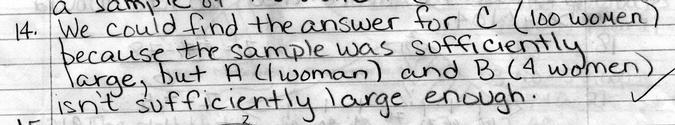 a sample of
14. We could find the answer for C (100 women)
because the sample was sufficiently
large, but A (1 woman) and B (4 women)
isn't sufficiently large enough.